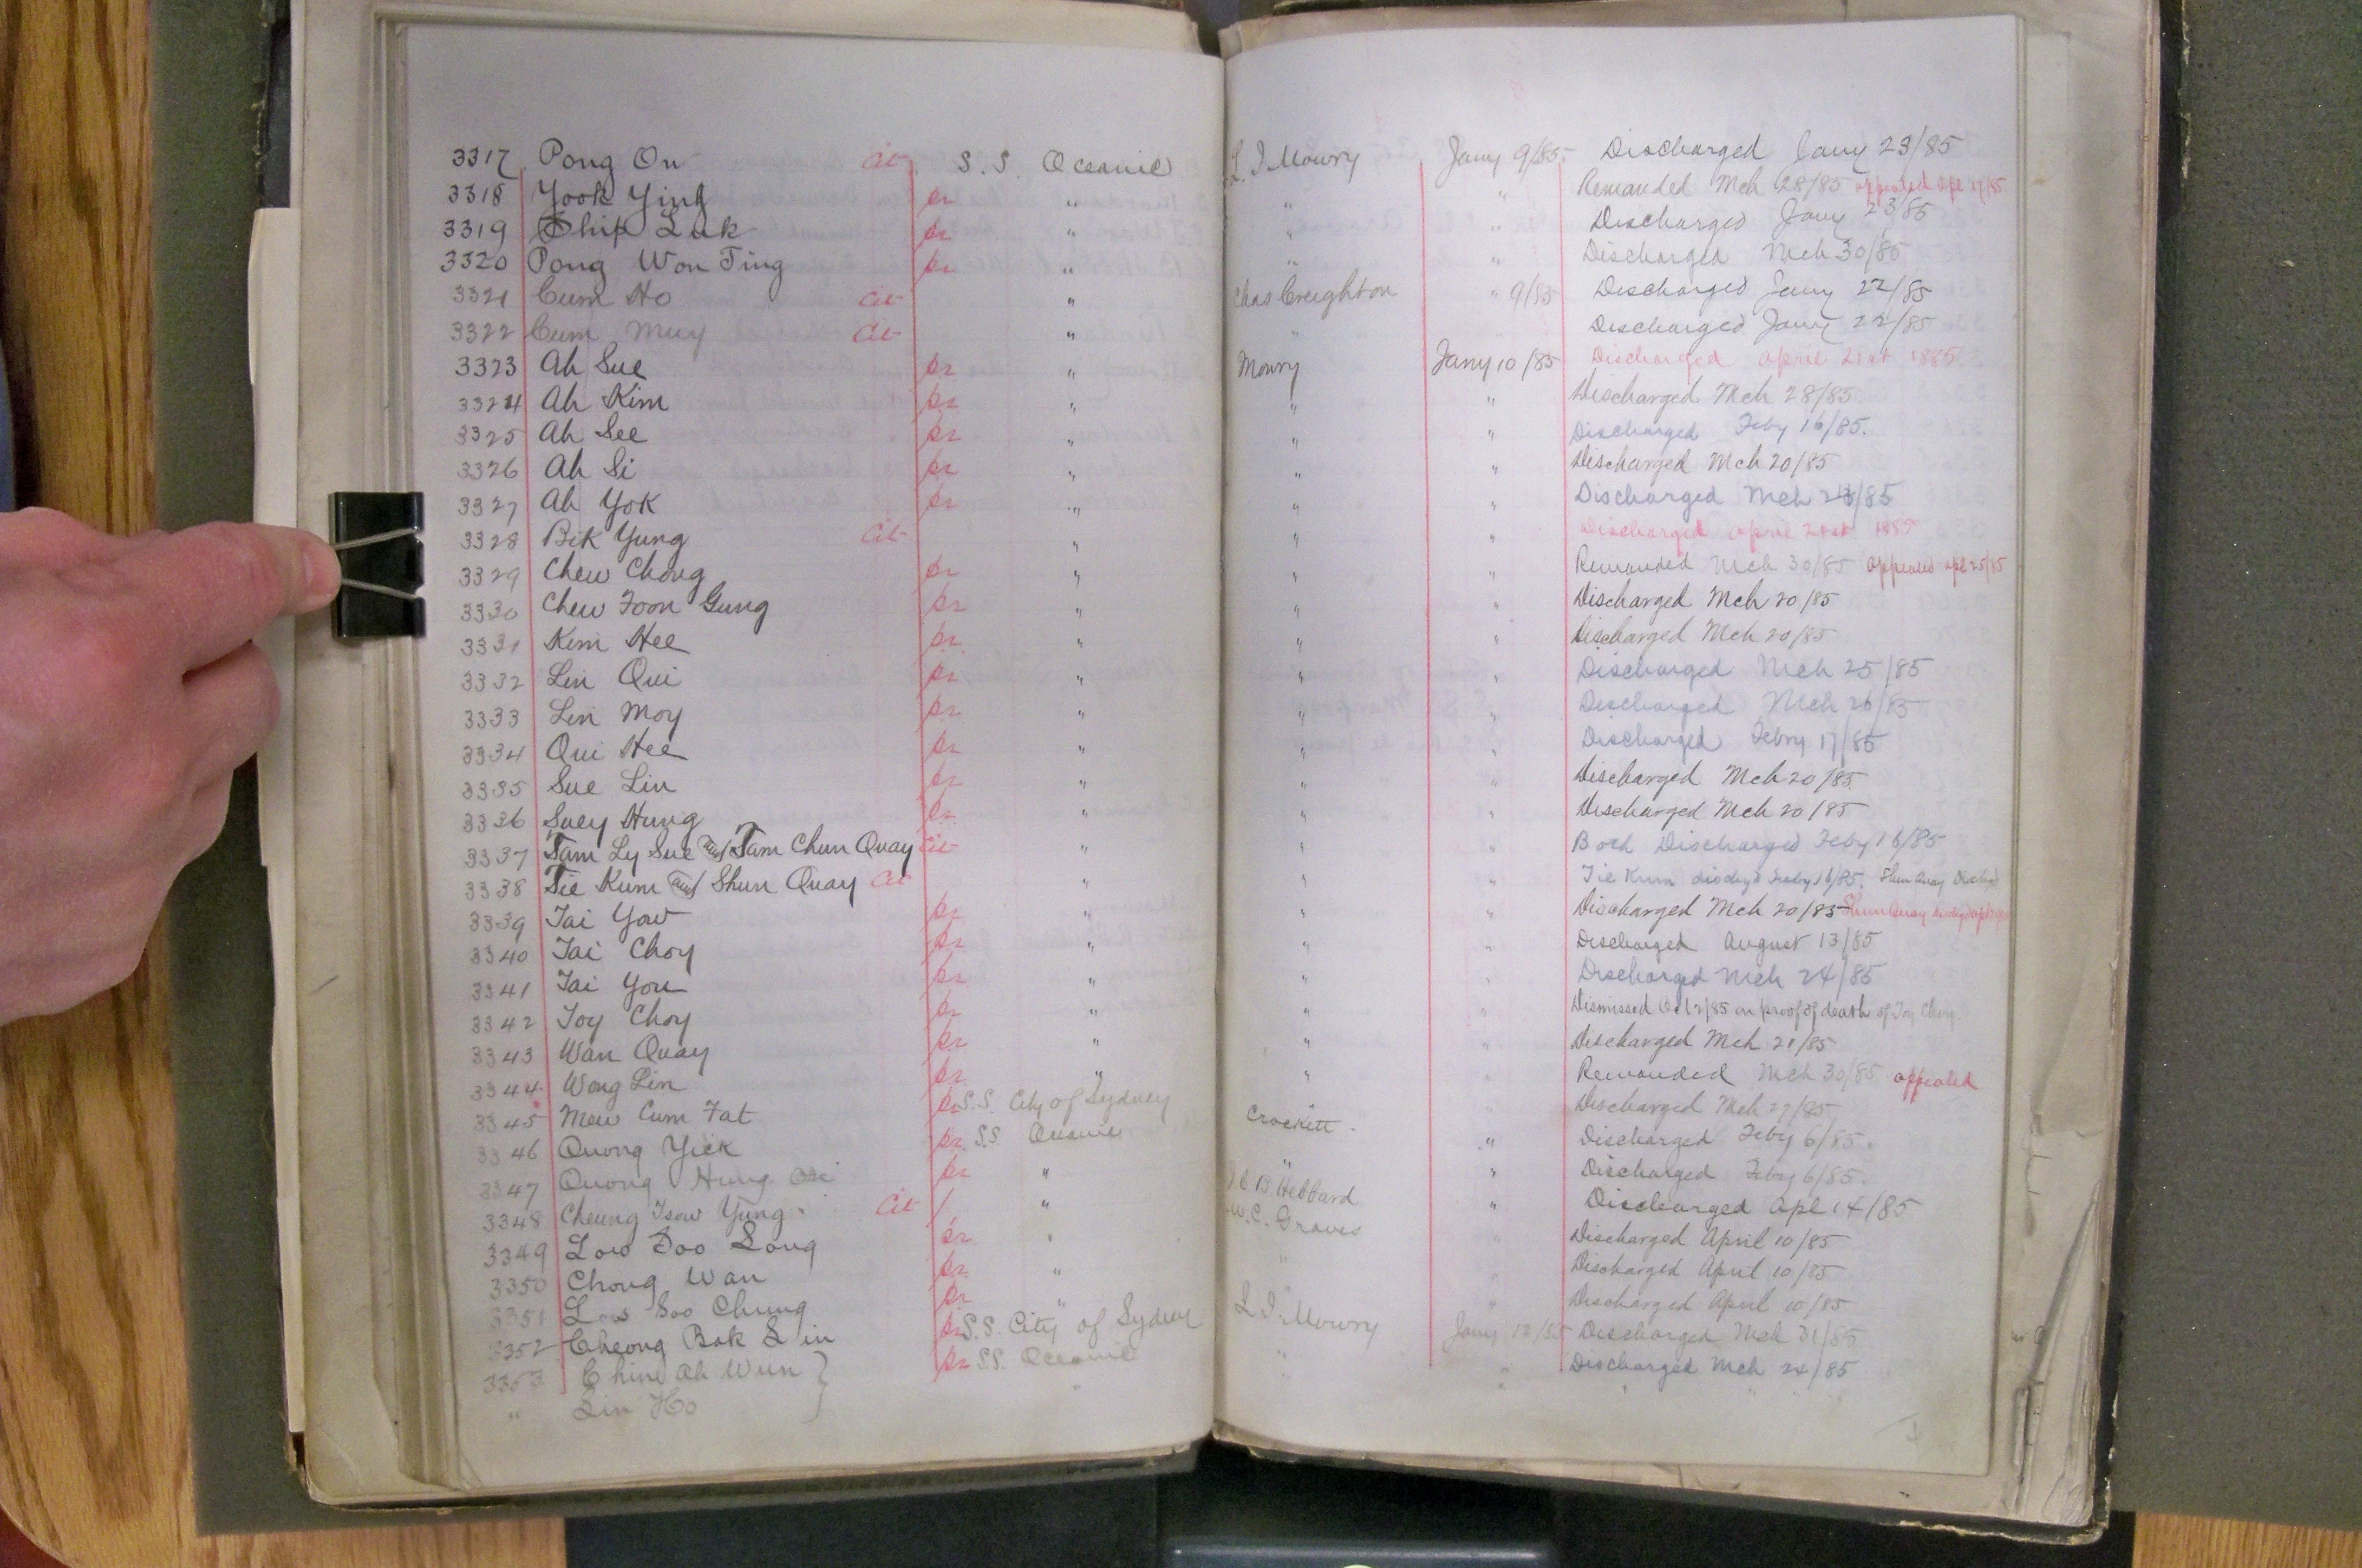 3317 Pong On Cit S.S. Oceanic L. I Mowry Jany 9/85. Discharged Jany 23/85
3318 Yook Ying pr " " " Remanded Mch 28/85 appealed Apl 17/85
3319 Ship Luk pr " " " Discharged Jany 23/85
3320 Pong Won Ting pr " " " Discharged Mch 30/85
3321 Cum Ho Cit " Chas Creighton " 9/85 Discharged Jany 22/85
3322 Cum Muy Cit " " Discharged Jany 22/85
3323 Ah Sue pr " Mowry Jany 10/85 Discharged April 21st 1885
3324 Ah Kim pr " " " Discharged Mch 28/85
3325 Ah See pr " " " Discharged Feby 16/85.
3326 Ah Si pr " " " Discharged Mch 20/85
3327 Ah Yok pr " " " Discharged Mch /85
3328 Bik Yung Cit " " " Discharged April 21st 1885
3329 Chew Chong pr " " " Remanded Mch 30/85 Appealed Apl 25/85
3330 Chew Foon Gung pr " " " Discharged Mch 20/85
3331 Kim Hee pr " " " Discharged Mch 20/85
3332 Lin Qui pr " " " Discharged Mch 25/85
3333 Lin Moy pr " " " Discharged Mch 26/85
3334 Qui Hee pr " " " Discharged Febry 17/85
3335 Sue Lin pr " " " Discharged Mch 20/85
3336 Suey Hung pr " " " Discharged Mch 20/85
3337 Tam Ly Sue and Tam Chun Quay Cit " " " Both Discharged Feby 16/85
3338 Tie Kum and Shun Quay Cit " " " Tie Kum dischgd Feby 16/85. Shun Quay
3339 Tai Yow pr " " " Discharged Mch 20/85 Shun Quay
3340 Tai Choy pr " " " Discharged August 13/85
3341 Tai You pr " " " Discharged Mch 24/85
3342 Toy Choy pr " " " Dismissed Oct 2/85 on proof of death of Toy Choy.
3343 Wan Quay pr " " " Discharged Mch 21/85
3344 Wong Lin pr " " " Remanded Mch 30/85 appealed
3345 Mew Cum Fat pr S.S. City of Sydney " Discharged Mch 27/85
3346 Quong Yick pr S.S Oceanic Crockett. " Discharged Feby 6/85.
3347 Quong Hung pr " " " Discharged Feby 6/85.
3348 Cheung Tsow Yung Cit " Hebbard " Discharged Apl 14/85
3349 Low Doo Song pr " W.C. Graves " Discharged April 10/85
3350 Chong Wan pr " " Discharged April 10/85
3351 Low Soo Chung pr " " Discharged April 10/85
3352 Cheong Bak Lin pr S.S. City of Sydney L I Mowry Jany 12/85 Discharged Mch 31/85
3353 Chin Ah Wun pr S.S. Oceanic " " Discharged Mch 24/85
" Lin Ho "